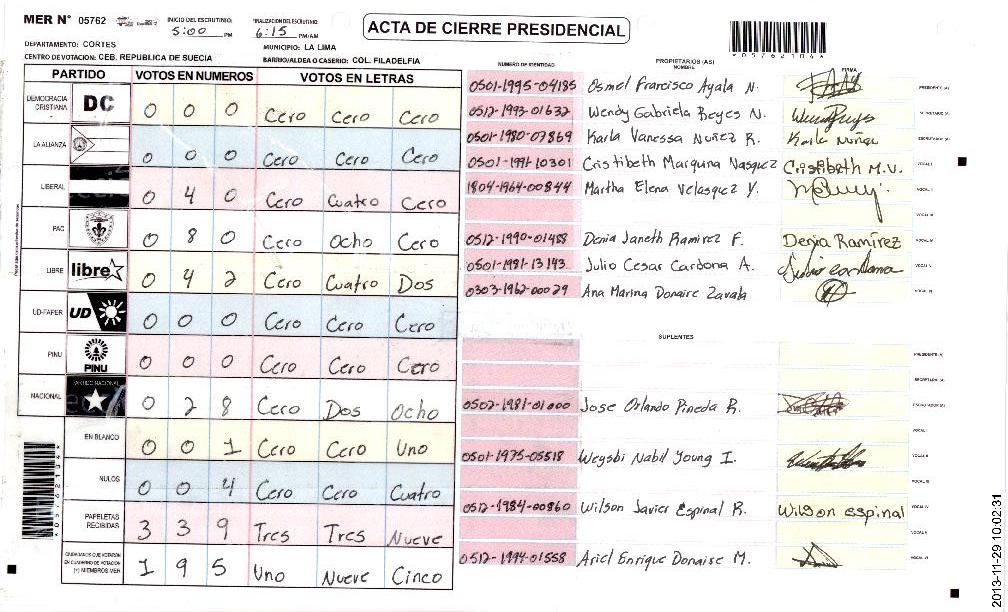 MER N° 05762
INICIO DEL ESCRUTINIO: 5:00 PM
FINALIZACION DEL ESCRUTINIO: 6:15 PM/AM
ACTA DE CIERRE PRESIDENCIAL
DEPARTAMENTO: CORTES
MUNICIPIO: LA LIMA
CENTRO DE VOTACION: CEB. REPUBLICA DE SUECIA
BARRIO/ALDEA O CASERIO: COL. FILADELFIA
*05762106*
PARTIDO VOTOS EN NUMEROS VOTOS EN LETRAS
DEMOCRACIA CRISTIANA DC 0 0 0 Cero Cero Cero
LA ALIANZA 0 0 0 Cero Cero Cero
LIBERAL 0 4 0 Cero Cuatro Cero
PAC 0 8 0 Cero Ocho Cero
LIBRE libre 0 4 2 Cero Cuatro Dos
UD-FAPER UD 0 0 0 Cero Cero Cero
PINU PINU 0 0 0 Cero Cero Cero
NACIONAL PARTIDO NACIONAL 0 2 8 Cero Dos Ocho
EN BLANCO 0 0 1 Cero Cero Uno
NULOS 0 0 4 Cero Cero Cuatro
PAPELETAS RECIBIDAS 3 3 9 Tres Tres Nueve
CIUDADANOS QUE VOTARON EN CUADERNO DE VOTACION (+) MIEMBROS MER 1 9 5 Uno Nueve Cinco
NUMERO DE IDENTIDAD PROPIETARIOS (AS) NOMBRE FIRMA
0501-1995-04185 Osmel Francisco Ayala N. PRESIDENTE (A)
0512-1993-01632 Wendy Gabriela Reyes N. SECRETARIO (A)
0501-1980-07869 Karla Vanessa Nuñez R. Karla Nuñez ESCRUTADOR (A)
0501-1991-10301 Cristibeth Marquina Vasquez Cristibeth M.V. VOCAL I
1804-1964-00844 Martha Elena Velasquez Y. VOCAL II
VOCAL III
0512-1990-01488 Denia Janeth Ramirez F. Denia Ramírez VOCAL IV
0501-1981-13143 Julio Cesar Cardona A. Julio Cardona VOCAL V
0303-1962-00029 Ana Marina Donaire Zavala VOCAL VI
SUPLENTES
PRESIDENTE (A)
SECRETARIO (A)
0502-1981-01000 Jose Orlando Pineda R. ESCRUTADOR (A)
VOCAL I
0501-1975-05518 Weysbi Nabil Young I. VOCAL II
VOCAL III
0512-1984-00860 Wilson Javier Espinal R. Wilson espinal VOCAL IV
VOCAL V
0512-1994-01558 Ariel Enrique Donaire M. VOCAL VI
2013-11-29 10:02:31